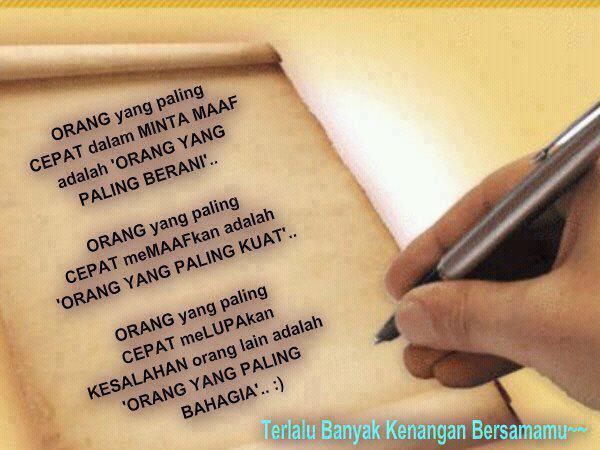 ORANG yang paling
CEPAT dalam MINTA MAAF
adalah 'ORANG YANG
PALING BERANI'..
ORANG yang paling
CEPAT meMAAFkan adalah
'ORANG YANG PALING KUAT'..
ORANG yang paling
CEPAT meLUPAkan
KESALAHAN orang lain adalah
'ORANG YANG PALING
BAHAGIA'.. :)
Terlalu Banyak Kenangan Bersamamu~~